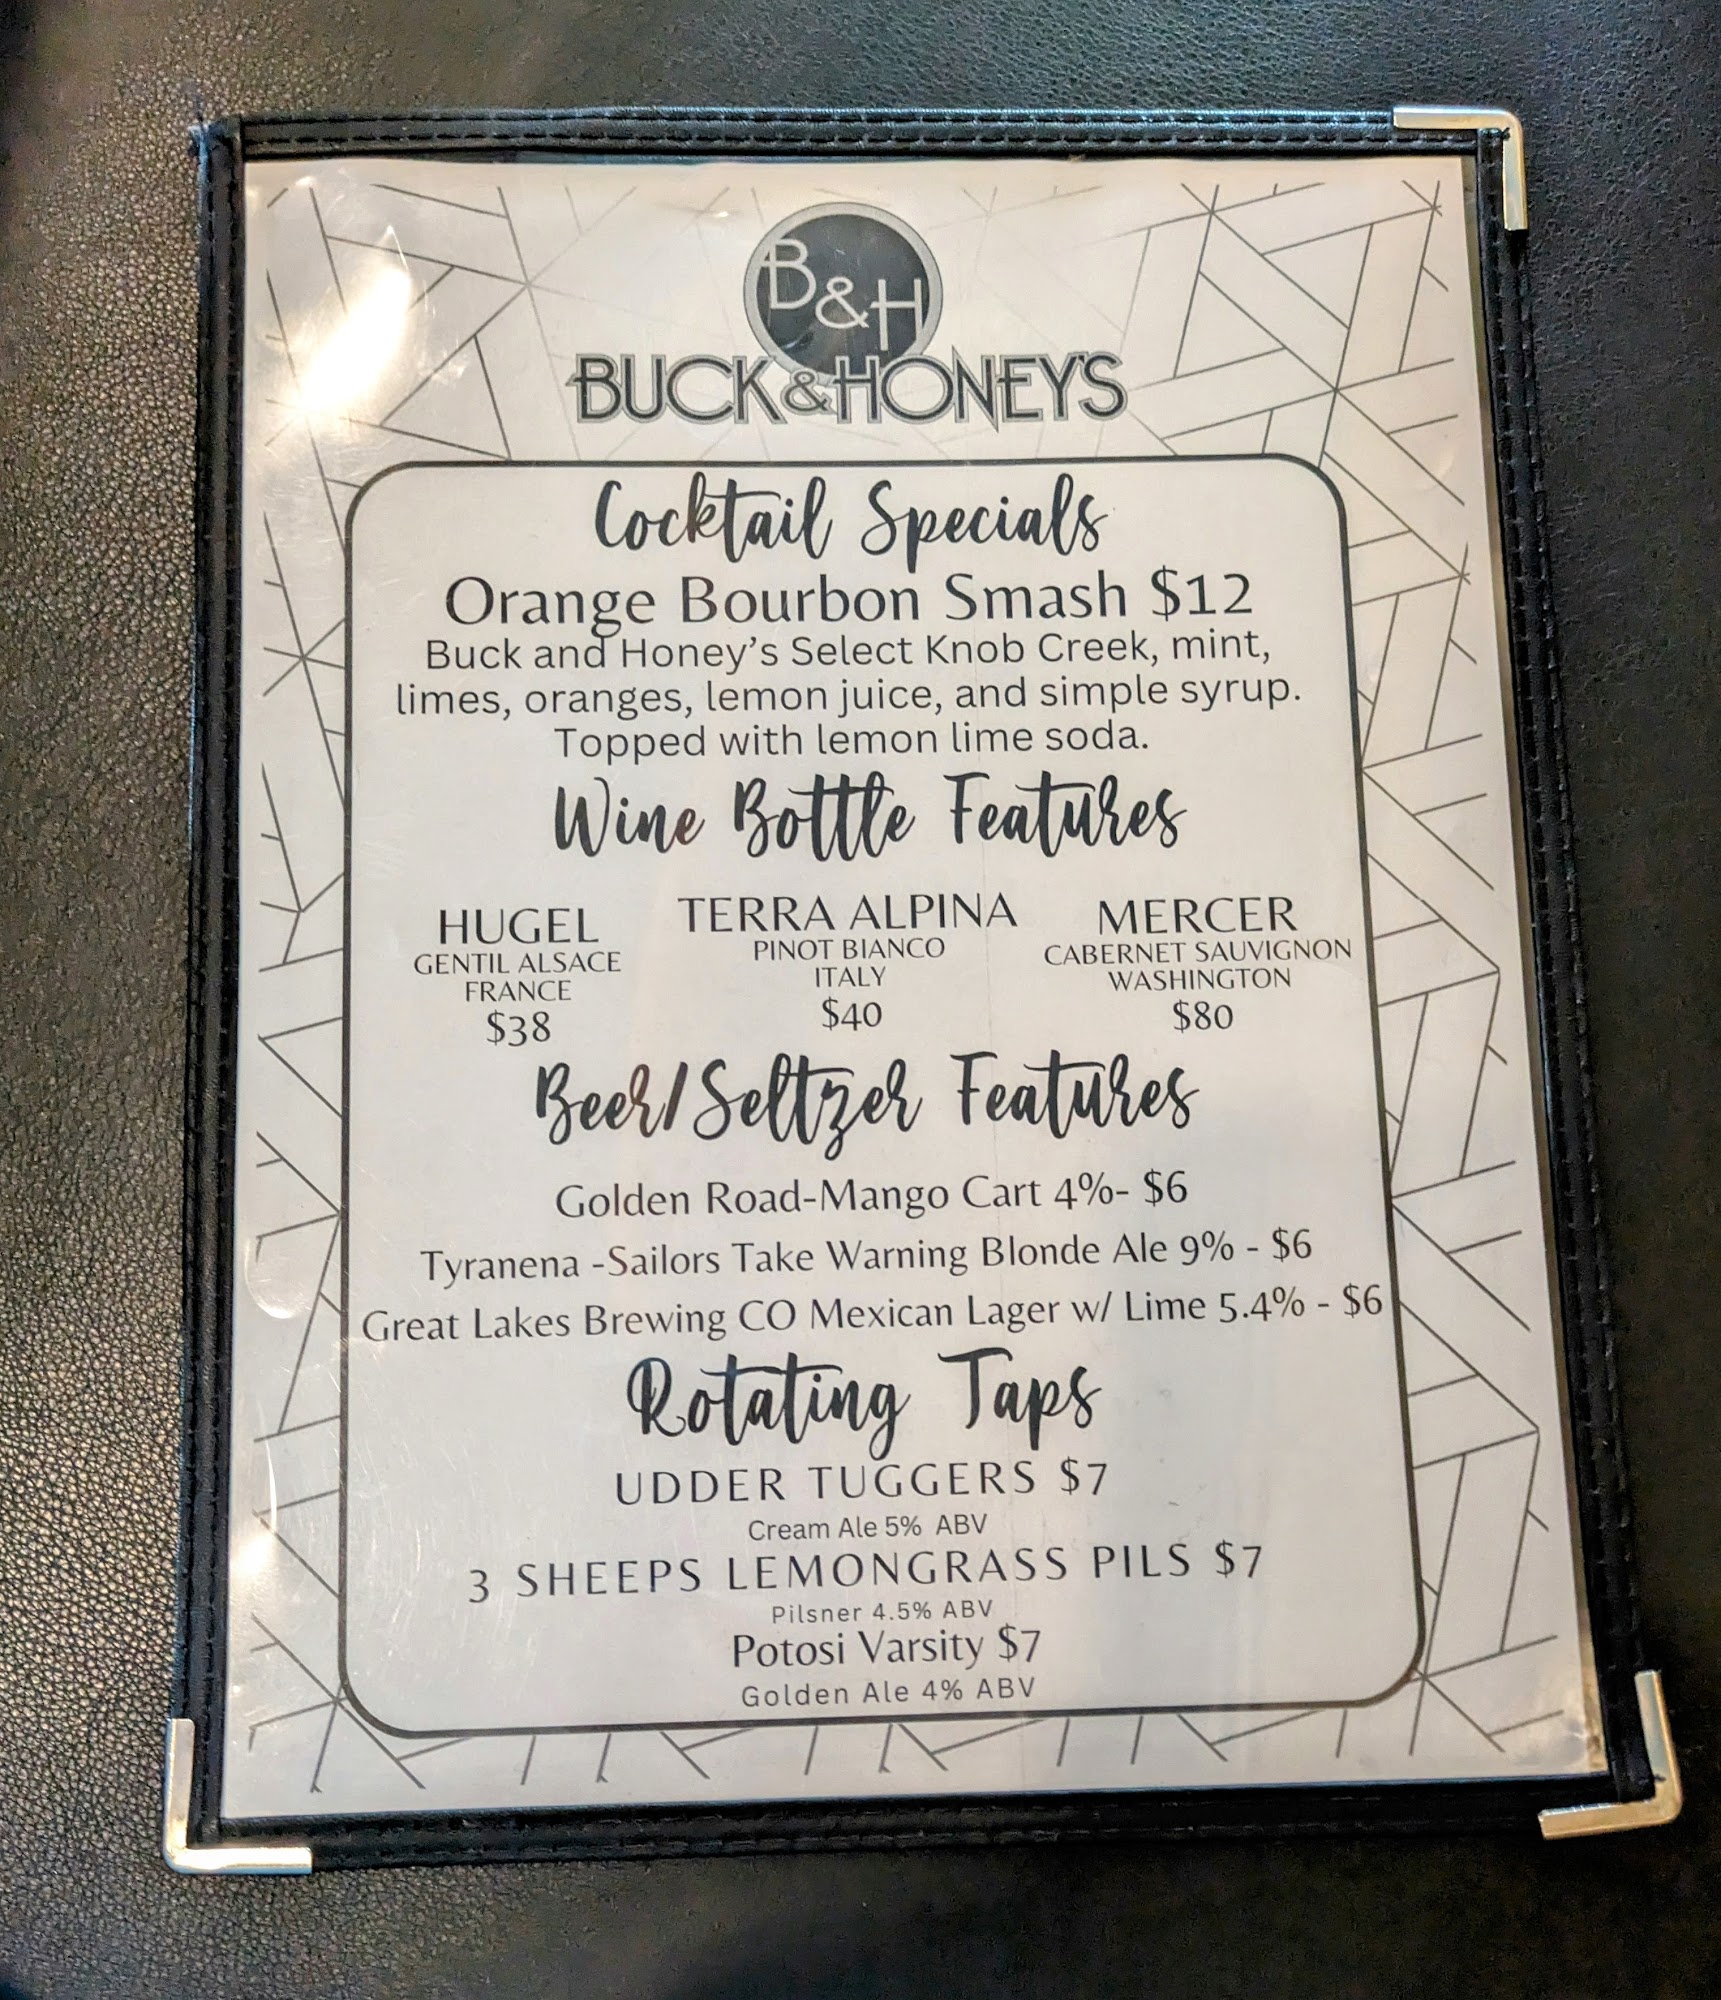 B&H
BUCK&HONEY'S
Cocktail Specials
Orange Bourbon Smash $12
Buck and Honey's Select Knob Creek, mint,
limes, oranges, lemon juice, and simple syrup.
Topped with lemon lime soda.
Wine Bottle Features
HUGEL
GENTIL ALSACE
FRANCE
$38
TERRA ALPINA
PINOT BIANCO
ITALY
$40
MERCER
CABERNET SAUVIGNON
WASHINGTON
$80
Beer/Seltzer Features
Golden Road-Mango Cart 4%- $6
Tyranena -Sailors Take Warning Blonde Ale 9% - $6
Great Lakes Brewing CO Mexican Lager w/ Lime 5.4% - $6
Rotating Taps
UDDER TUGGERS $7
Cream Ale 5% ABV
3 SHEEPS LEMONGRASS PILS $7
Pilsner 4.5% ABV
Potosi Varsity $7
Golden Ale 4% ABV